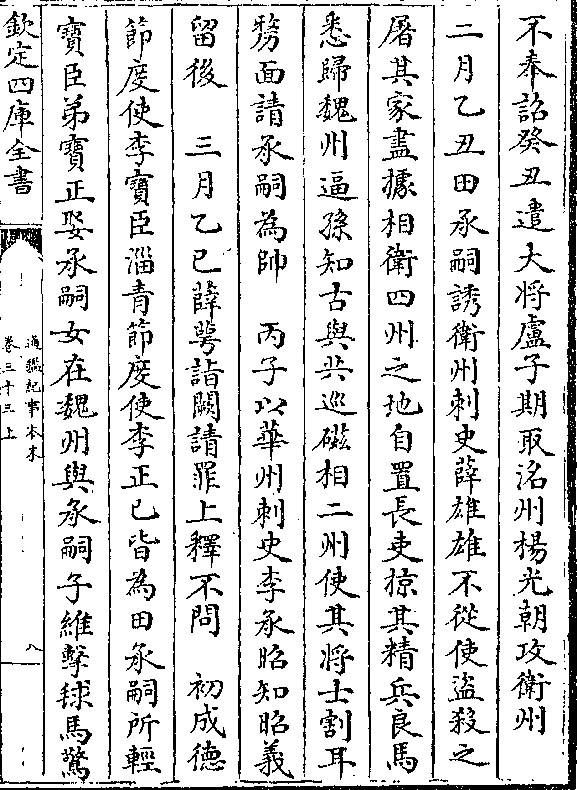 不奉詔癸丑遣大將盧子期取洺州楊光朝攻衛州
二月乙丑田承嗣誘衛州刺史薛雄雄不從使盜殺之
屠其家盡據相衛四州之地自置長吏掠其精兵良馬
悉歸魏州逼孫知古與共巡磁相二州使其將士割耳
剺面請承嗣為帥　丙子以華州刺史李承昭知昭義
留後　三月乙巳薛㟧詣闕請罪上釋不問　初成德
節度使李寶臣淄青節度使李正已皆為田承嗣所輕
寶臣弟寶正娶承嗣女在魏州與承嗣子維擊毬馬驚
欽定四庫全書
通鑑紀事本末
卷三十三上
八